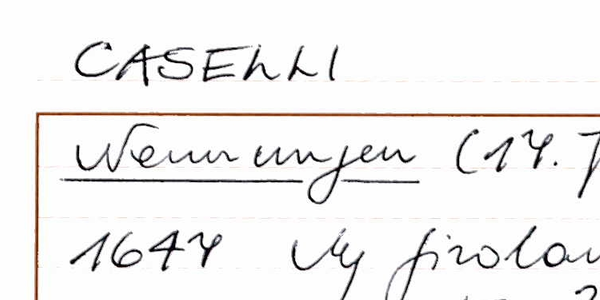 CASELLI
Nennungen (17. J
1647 Vg Girolam